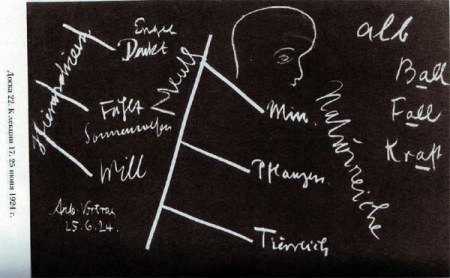 Доска 22. К лекции 17, 25 июня 1924 г.
Denkt
Fühlt
Sonnenwesen
Will
Arb. Vortrag
25.6.24.
Min.
Pflanzen
Tierreich
Naturreiche
alb
Ball
Fall
Kraft